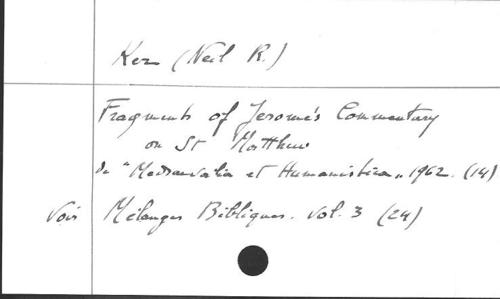 Ker (Neil R.)
Fragments of Jerome's Commentary
on St Matthew
In "Mediaevalia et Humanistica" 1962. (14)
Voir Mélanges Bibliques. Vol. 3 (24)